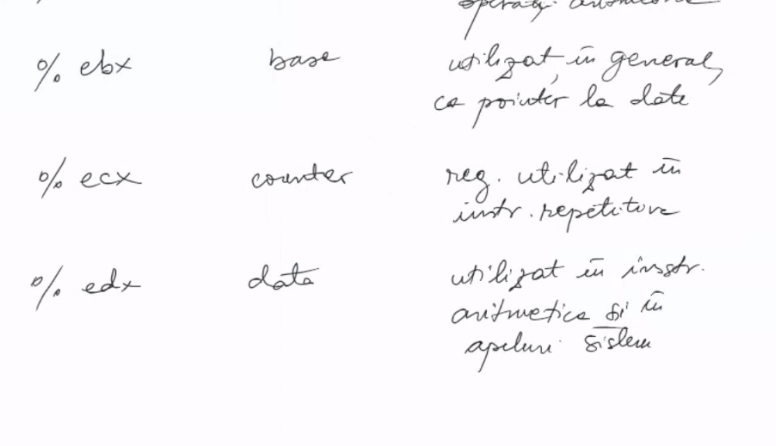 operații aritmetice
% ebx base utilizat în general,
ca pointer la date
% ecx counter reg. utilizat în
instr. repetitive
% edx data utilizat în insstr.
aritmetice și în
apeluri sistem